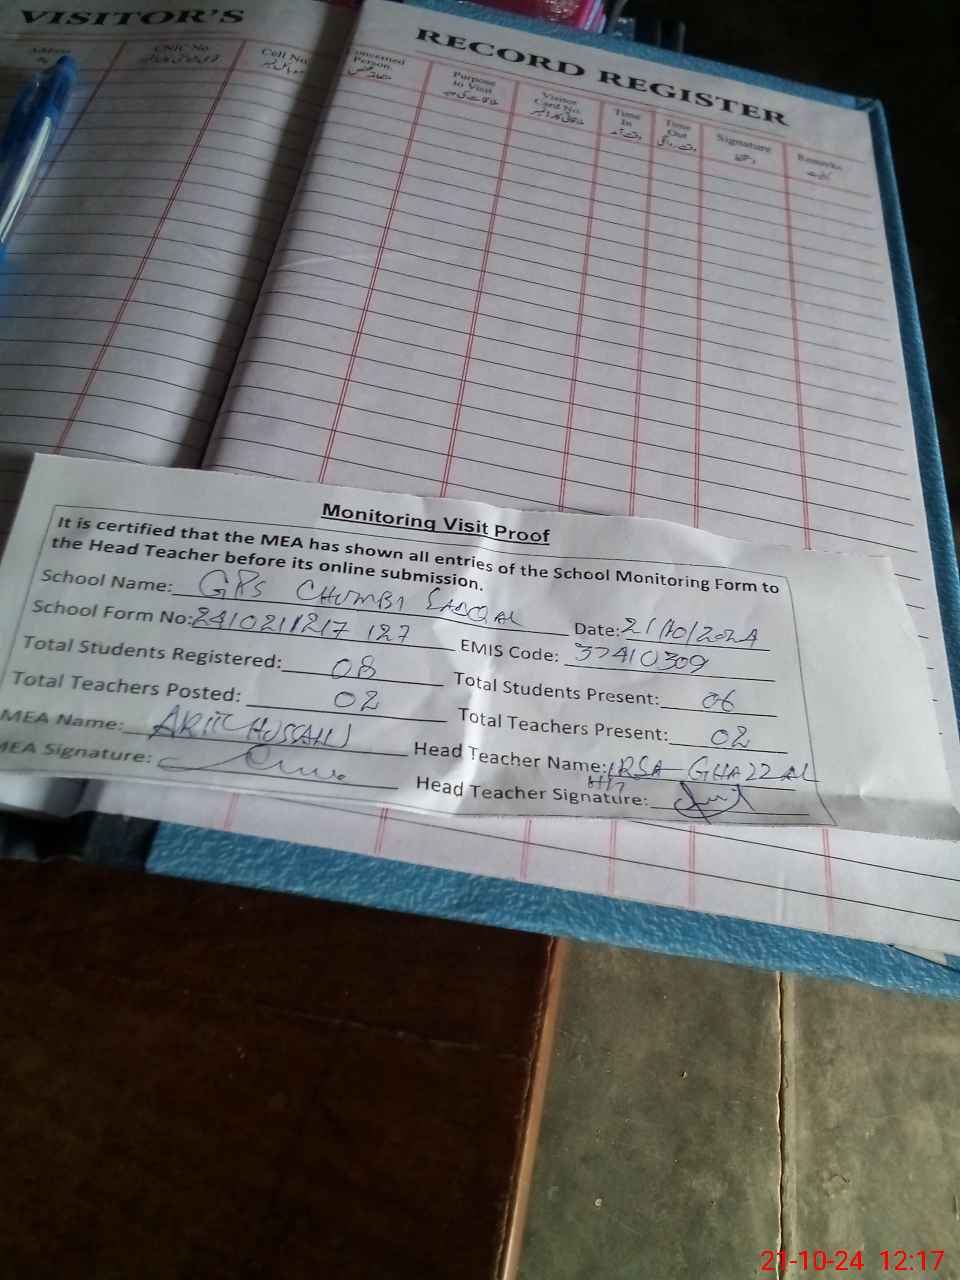 VISITOR'S
RECORD REGISTER
Address
CNIC No
Cell No
Concerned Person
Purpose to Visit
Visitor Card No.
Time In
Time Out
Signature
Remarks
Monitoring Visit Proof
It is certified that the MEA has shown all entries of the School Monitoring Form to
the Head Teacher before its online submission.
School Name: GPS CHUMBI SADQAL Date: 21/10/2024
School Form No: 2410211217 127 EMIS Code: 37410309
Total Students Registered: 08 Total Students Present: 06
Total Teachers Posted: 02 Total Teachers Present: 02
MEA Name: HUSSAIN Head Teacher Name: IRSA GHAZZAL
MEA Signature: Head Teacher Signature:
21-10-24 12:17